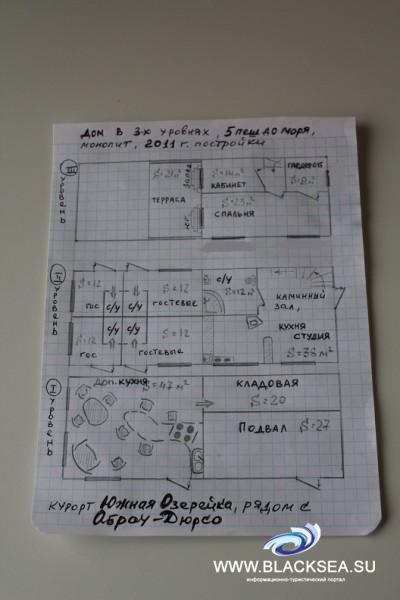 Дом в 3-х уровнях, 5 пеш до моря,
монолит, 2011 г. постройки
III
уровень
S=21м²
Терраса
Запад
Юг
S=14м²
кабинет
S=25м²
спальня
гардероб
S=8м²
II
уровень
S=12
гос
с/у
с/у
S=12
гостевые
с/у
S=12м²
каминный
зал,
кухня
студия
S=36м²
S=12
гос
с/у
с/у
S=12
гостевые
I
уровень
доп. кухня
S=47м²
кладовая
S=20
Подвал S=27
курорт Южная Озерейка, рядом с
Абрау-Дюрсо
WWW.BLACKSEA.SU
информационно-туристический портал